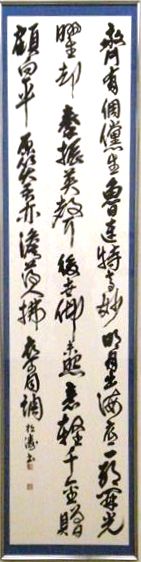 齊有倜儻生魯連特高妙明月出海底一朝開光
曜却秦振英聲後世仰末照意輕千金贈
顧向平原笑吾亦澹蕩人拂衣可同調